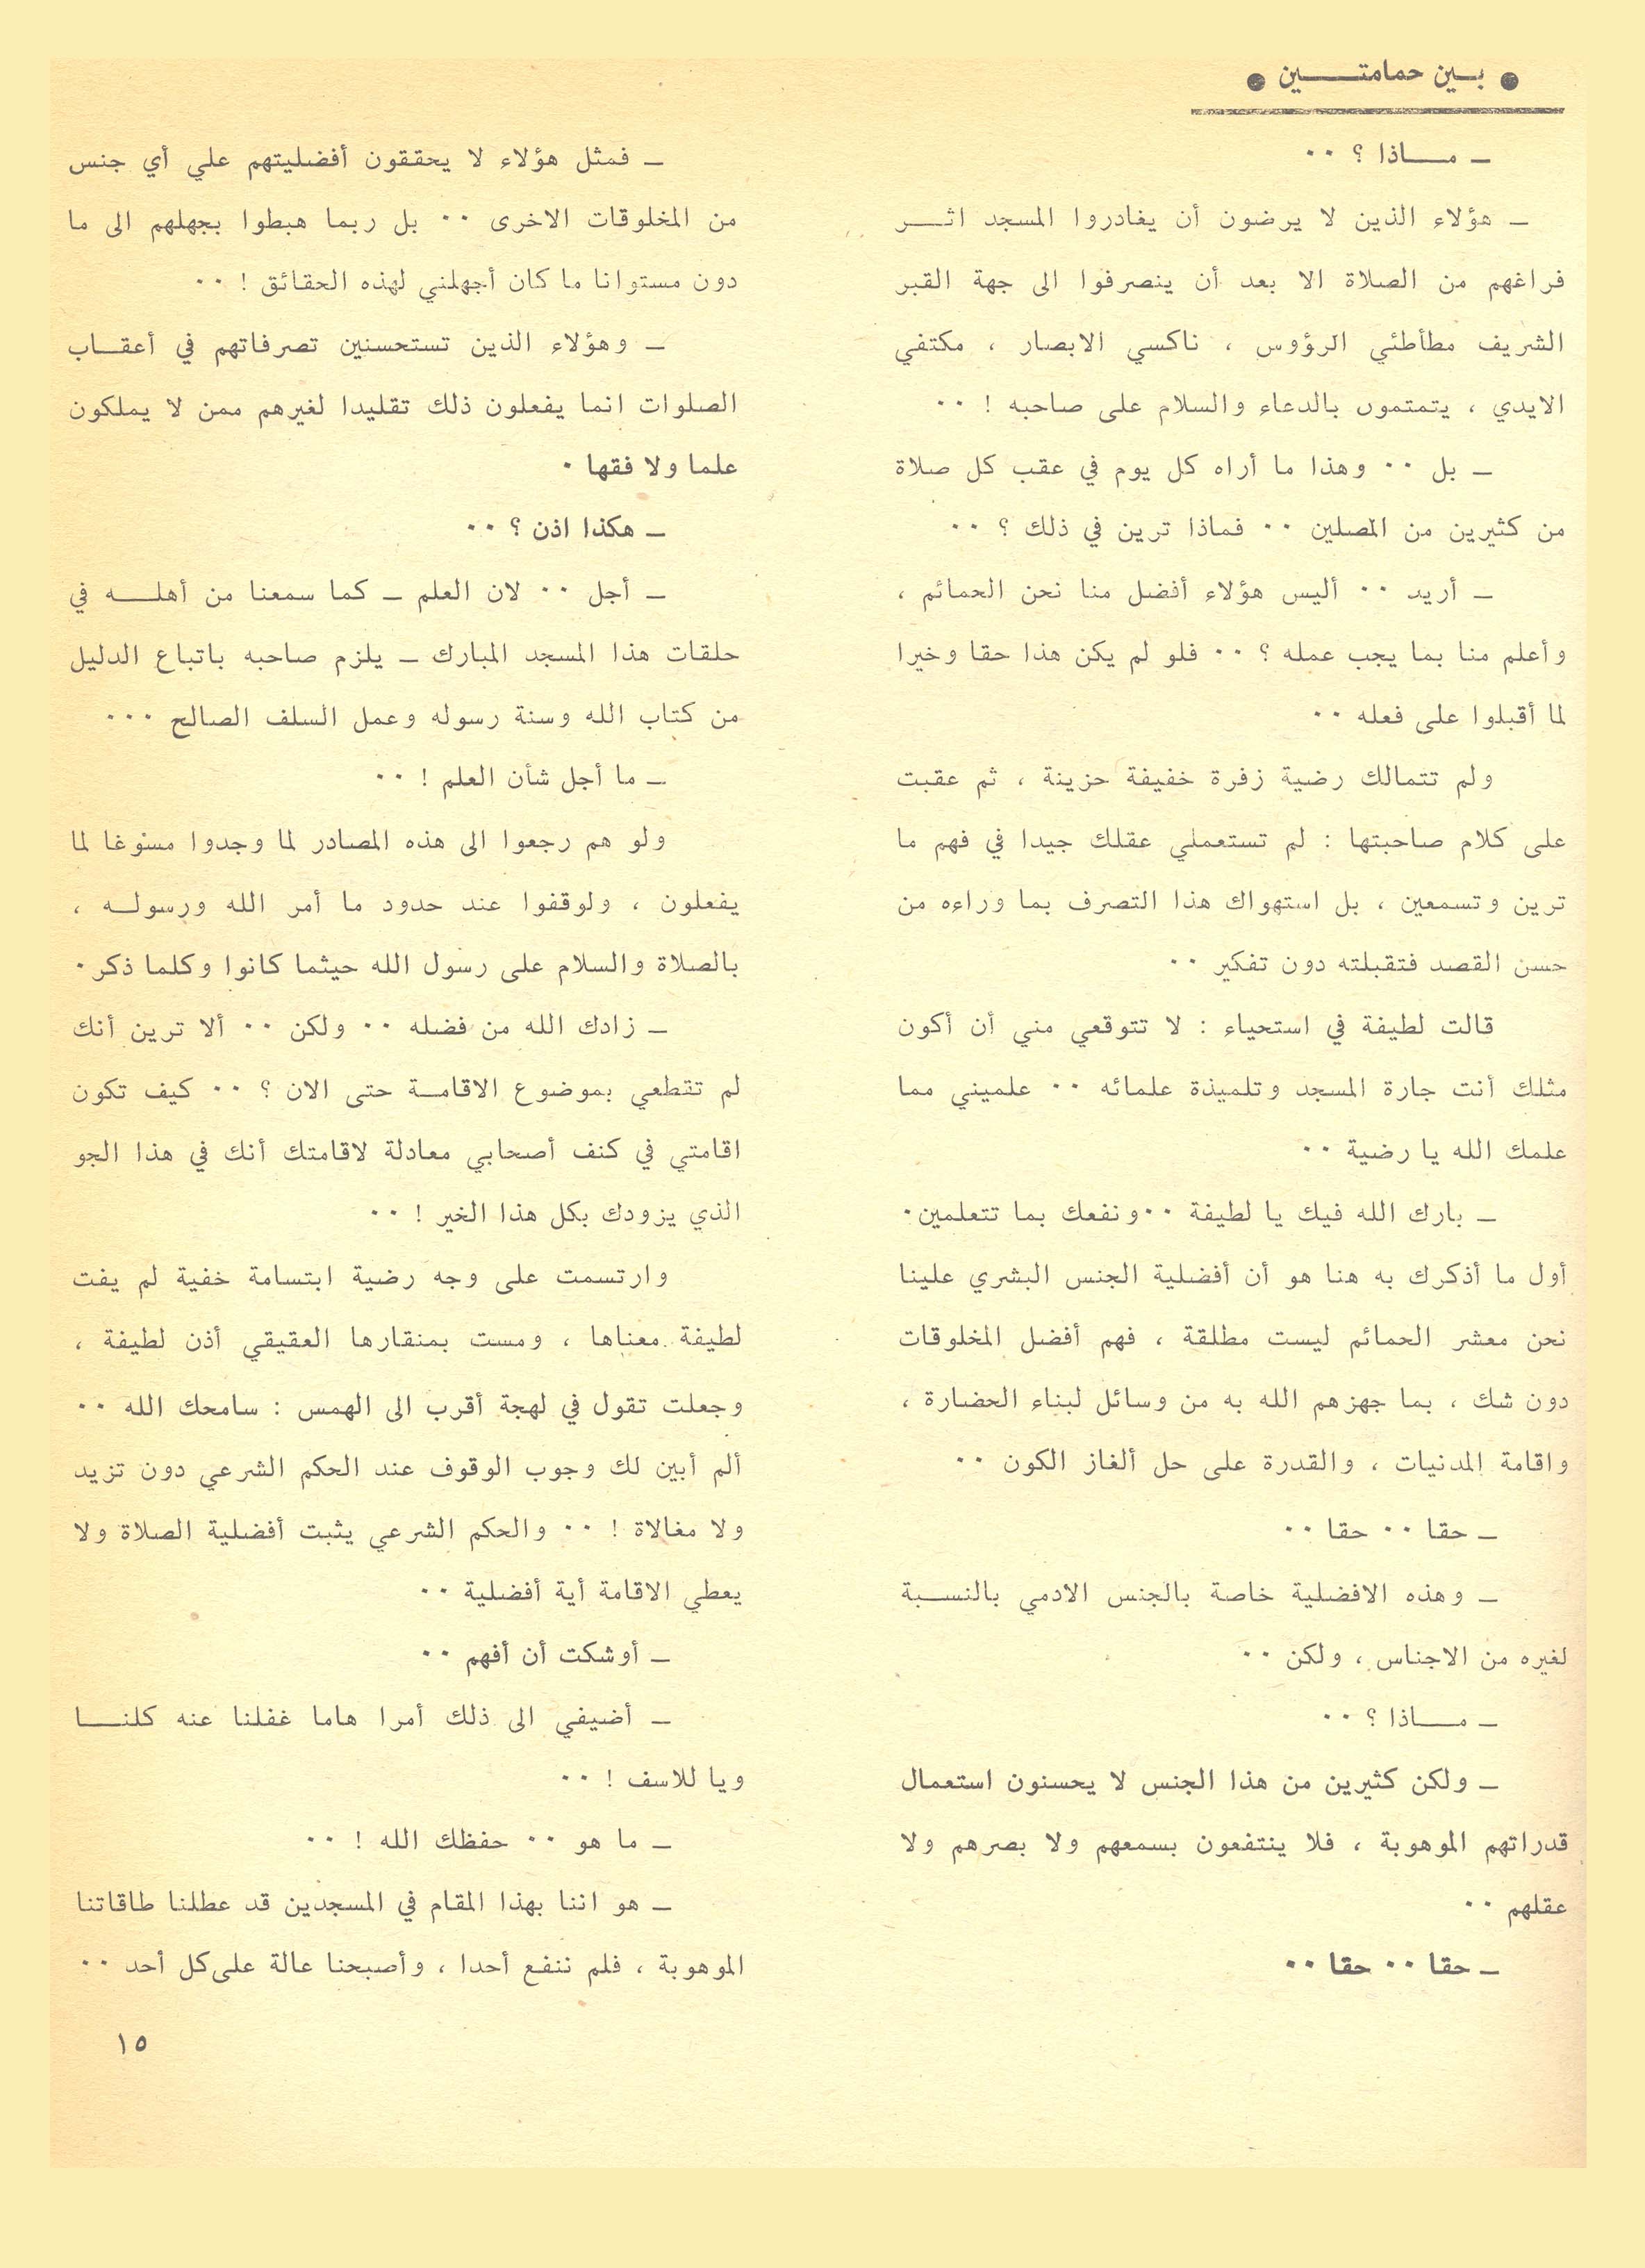 ● بين حمامتين ●
— ماذا ؟ ٠٠
— هؤلاء الذين لا يرضون أن يغادروا المسجد اثر
فراغهم من الصلاة الا بعد أن ينصرفوا الى جهة القبر
الشريف مطأطئي الرؤوس ، ناكسي الابصار ، مكتفي
الايدي ، يتمتمون بالدعاء والسلام على صاحبه ! ٠٠
— بل ٠٠ وهذا ما أراه كل يوم في عقب كل صلاة
من كثيرين من المصلين ٠٠ فماذا ترين في ذلك ؟ ٠٠
— أريد ٠٠ أليس هؤلاء أفضل منا نحن الحمائم ،
وأعلم منا بما يجب عمله ؟ ٠٠ فلو لم يكن هذا حقا وخيرا
لما أقبلوا على فعله ٠٠
ولم تتمالك رضية زفرة خفيفة حزينة ، ثم عقبت
على كلام صاحبتها : لم تستعملي عقلك جيدا في فهم ما
ترين وتسمعين ، بل استهواك هذا التصرف بما وراءه من
حسن القصد فتقبلته دون تفكير ٠٠
قالت لطيفة في استحياء : لا تتوقعي مني أن أكون
مثلك أنت جارة المسجد وتلميذة علمائه ٠٠ علميني مما
علمك الله يا رضية ٠٠
— بارك الله فيك يا لطيفة ٠٠ ونفعك بما تتعلمين٠
أول ما أذكرك به هنا هو أن أفضلية الجنس البشري علينا
نحن معشر الحمائم ليست مطلقة ، فهم أفضل المخلوقات
دون شك ، بما جهزهم الله به من وسائل لبناء الحضارة ،
واقامة المدنيات ، والقدرة على حل ألغاز الكون ٠٠
— حقا ٠٠ حقا ٠٠
— وهذه الافضلية خاصة بالجنس الادمي بالنسبة
لغيره من الاجناس ، ولكن ٠٠
— ماذا ؟ ٠٠
— ولكن كثيرين من هذا الجنس لا يحسنون استعمال
قدراتهم الموهوبة ، فلا ينتفعون بسمعهم ولا بصرهم ولا
عقلهم ٠٠
— حقا ٠٠ حقا ٠٠
— فمثل هؤلاء لا يحققون أفضليتهم علي أي جنس
من المخلوقات الاخرى ٠٠ بل ربما هبطوا بجهلهم الى ما
دون مستوانا ما كان أجهلني لهذه الحقائق ! ٠٠
— وهؤلاء الذين تستحسنين تصرفاتهم في أعقاب
الصلوات انما يفعلون ذلك تقليدا لغيرهم ممن لا يملكون
علما ولا فقها ٠
— هكذا اذن ؟ ٠٠
— أجل ٠٠ لان العلم — كما سمعنا من أهله في
حلقات هذا المسجد المبارك — يلزم صاحبه باتباع الدليل
من كتاب الله وسنة رسوله وعمل السلف الصالح ٠٠٠
— ما أجل شأن العلم ! ٠٠
ولو هم رجعوا الى هذه المصادر لما وجدوا مسوغا لما
يفعلون ، ولوقفوا عند حدود ما أمر الله ورسوله ،
بالصلاة والسلام على رسول الله حيثما كانوا وكلما ذكر٠
— زادك الله من فضله ٠٠ ولكن ٠٠ ألا ترين أنك
لم تقطعي بموضوع الاقامة حتى الان ؟ ٠٠ كيف تكون
اقامتي في كنف أصحابي معادلة لاقامتك أنك في هذا الجو
الذي يزودك بكل هذا الخير ! ٠٠
وارتسمت على وجه رضية ابتسامة خفية لم يفت
لطيفة معناها ، ومست بمنقارها العقيقي أذن لطيفة ،
وجعلت تقول في لهجة أقرب الى الهمس : سامحك الله ٠٠
ألم أبين لك وجوب الوقوف عند الحكم الشرعي دون تزيد
ولا مغالاة ! ٠٠ والحكم الشرعي يثبت أفضلية الصلاة ولا
يعطي الاقامة أية أفضلية ٠٠
— أوشكت أن أفهم ٠٠
— أضيفي الى ذلك أمرا هاما غفلنا عنه كلنا
ويا للاسف ! ٠٠
— ما هو ٠٠ حفظك الله ! ٠٠
— هو اننا بهذا المقام في المسجدين قد عطلنا طاقاتنا
الموهوبة ، فلم ننفع أحدا ، وأصبحنا عالة على كل أحد ٠٠
١٥